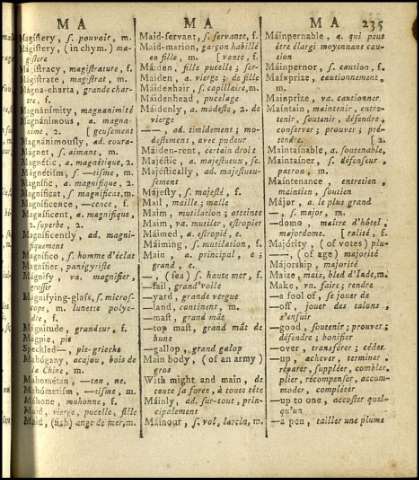 M A
M A
M A 235
Magistery, s. pouvoir, m.
Magistery, (in chym.) ma-
gistere
Magistracy, magistrature, f.
Magistrate, magistrat, m.
Magna-charta, grande char-
tre, f.
Magnanimity, magnanimité
Magnánimous, a. magna-
nime, 2. [geusement
Magnánimously, ad. coura-
Magnet, s. aimant, m.
Magnétic, a. magnétique, 2.
Magnétism, s. —tisme, m.
Magnific, a. magnifique, 2.
Magníficat, s. magnificat, m.
Magníficence, —ence, f.
Magníficent, a. magnifique,
2. superbe, 2.
Magníficently, ad. magni-
fiquement
Magnífico, s. homme d'éclat
Mágnifier, panégyriste
Magnify, va. magnifier,
grossir
Magnifying-glass, s. microsc-
ope, m. lunette polye-
dre, f.
Magnitude, grandeur, f.
Magpie, pie
Speckled—, pie-grieche
Mahógany, acajou, bois de
la Chine, m.
Mahométan, —tan, ne.
Mahómetism, —tisme, m.
Mahone, mahonne, f.
Maid, vierge, pucelle, fille
Maid, (fish) ange de mer, m.
Maid-servant, s. servante, f.
Maid-marion, garçon habillé
en fille, m. [vante, f.
Máiden, fille pucelle; ser-
Maiden, a. vierge; de fille
Máidenhair, s. capillaire, m.
Máidenhead, pucelage
Máidenly, a. modeste, 2. de
vierge
——, ad. timidement; mo-
destement, avec pudeur
Maiden-rent, certain droit
Majéstic, a. majestueux, se.
Majéstically, ad. majestueu-
sement
Májesty, s. majesté, f.
Mail, maille; malle
Maim, mutilation; atteinte
Maim, va. mutiler, estropier
Máimed, a. estropié, e.
Máiming, s. mutilation, f.
Main, a. principal, e;
grand, e.
—, (sea) s. haute mer, f.
—sail, grand'voile
—yard, grande vergue
—land, continent, m.
—mast, grand mât
—top mast, grand mât de
hune
—gallop, grand galop
Main body, (of an army)
gros
With might and main, de
toute sa force, à toute tête
Máinly, ad. sur-tout, prin-
cipalement
Máinour, s. vol, larcin, m.
Máinpernable, a. qui peut
être élargi moyennant cau-
tion
Máinpernor, s. caution, f.
Mainprize, cautionnement,
m.
Mainprize, va. cautionner
Maintáin, maintenir, entre-
tenir, soutenir, défendre,
conserver; prouver; pré-
tendre. [2.
Maintainable, a. soutenable,
Maintainer, s. défenseur,
patron, m.
Maintenance, entretien,
maintien, soutien
Májor, a. le plus grand
—, s. major, m.
—domo, maître d'hôtel,
majordome. [ralité, f.
Majórity, (of votes) plu-
——, (of age) majorité
Majorship, majorité
Maize, mais, bled d'Inde, m.
Make, va. faire; rendre
—a fool of, se jouer de
—off, jouer des talons,
s'enfuir
—good, soutenir; prouver;
défendre; bonifier
—over, transférer; céder
—up, achever, terminer,
réparer, suppléer, combler,
plier, récompenser, accom-
moder, compléter
—up to one, accoster quel-
qu'un
—a pen, tailler une plume